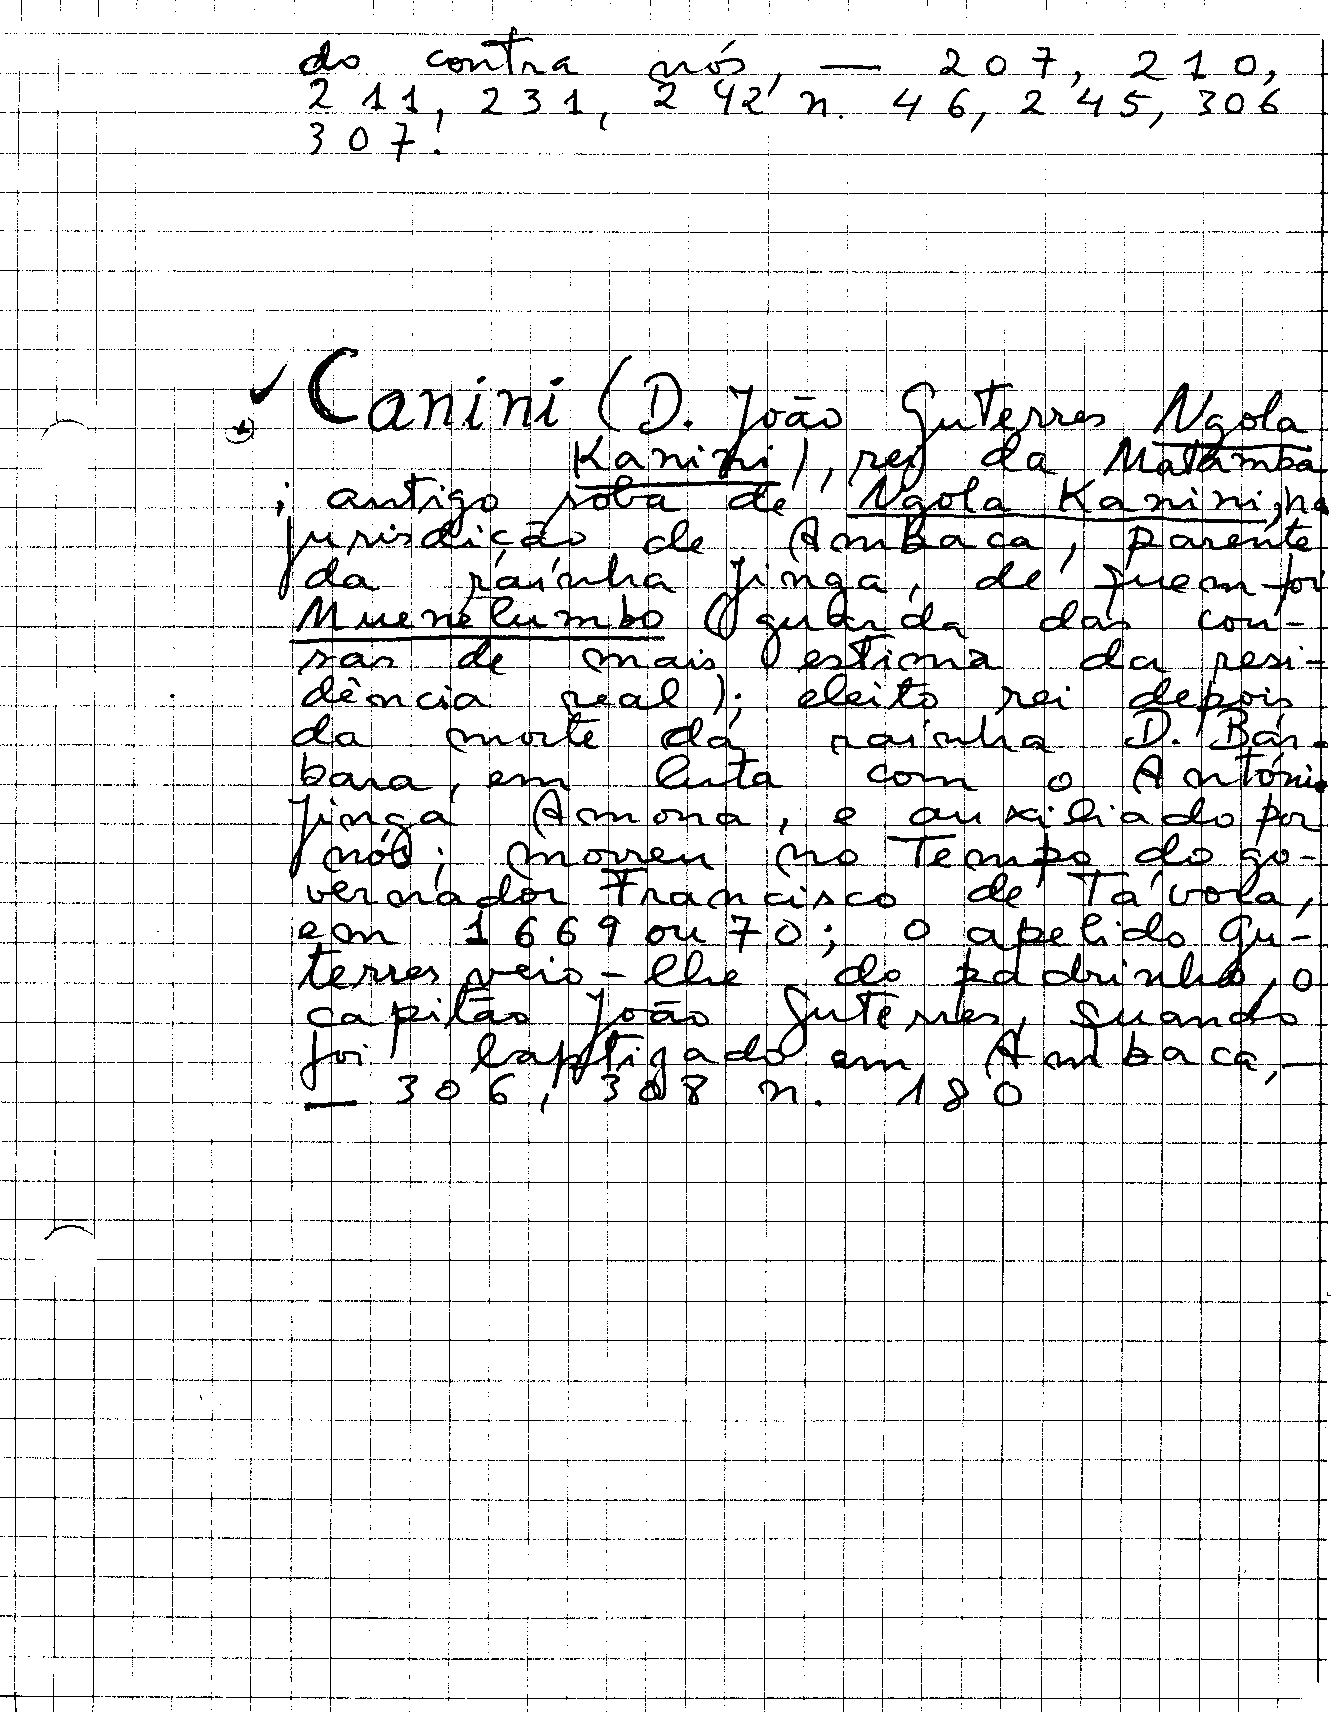 do contra nós, — 207, 210,
211, 231, 242 n. 46, 245, 306
307.
✓ Canini (D. João Guterres Ngola
Kanini), rei da Matamba
; antigo soba de Ngola Kanini, na
jurisdição de Ambaca, parente
da rainha Jinga, de quem foi
Muenelumbo (guarda das cou-
sas de mais estima da resi-
dência real); eleito rei depois
da morte da rainha D. Bár-
bara, em luta com o António
Jinga Amona, e auxiliado por
nós; morreu no tempo do go-
vernador Francisco de Távola,
em 1669 ou 70; o apelido Gu-
terres veio-lhe do padrinho, o
capitão João Guterres, quando
foi baptizado em Ambaca, —
— 306, 308 n. 180